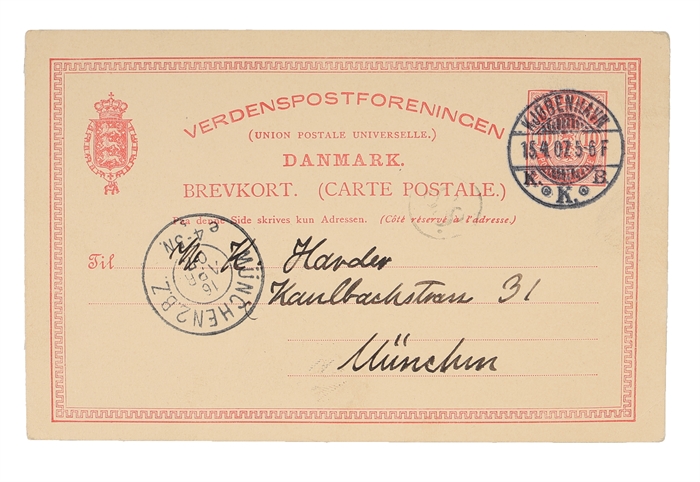 VERDENSPOSTFORENINGEN
(UNION POSTALE UNIVERSELLE.)
DANMARK.
BREVKORT. (CARTE POSTALE.)
Paa denne Side skrives kun Adressen. (Côté réservé à l'adresse.)
KJØBENHAVN
15.4.02.5-6F
K. K. B
Til H Harder
Kaulbachstrass 31
München
MÜNCHEN 2 B.Z.
16
4-5N